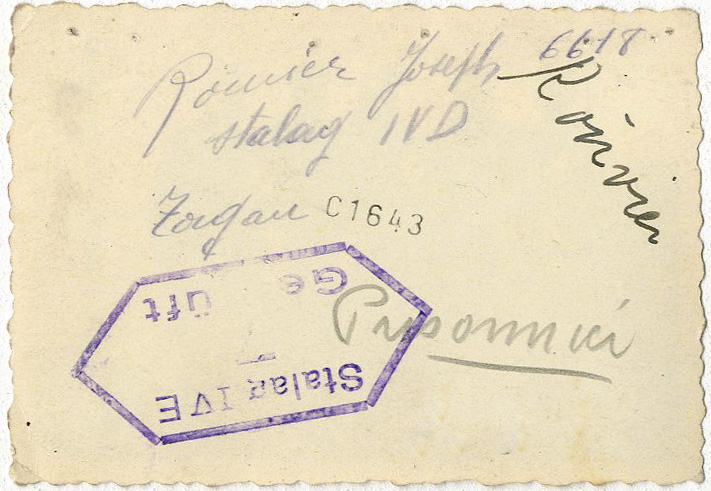 Rouvier Joseph 6618
stalag IVD
Torgau C1643
Rouvier
Prisonnier
Stalag IVE
Ge üft